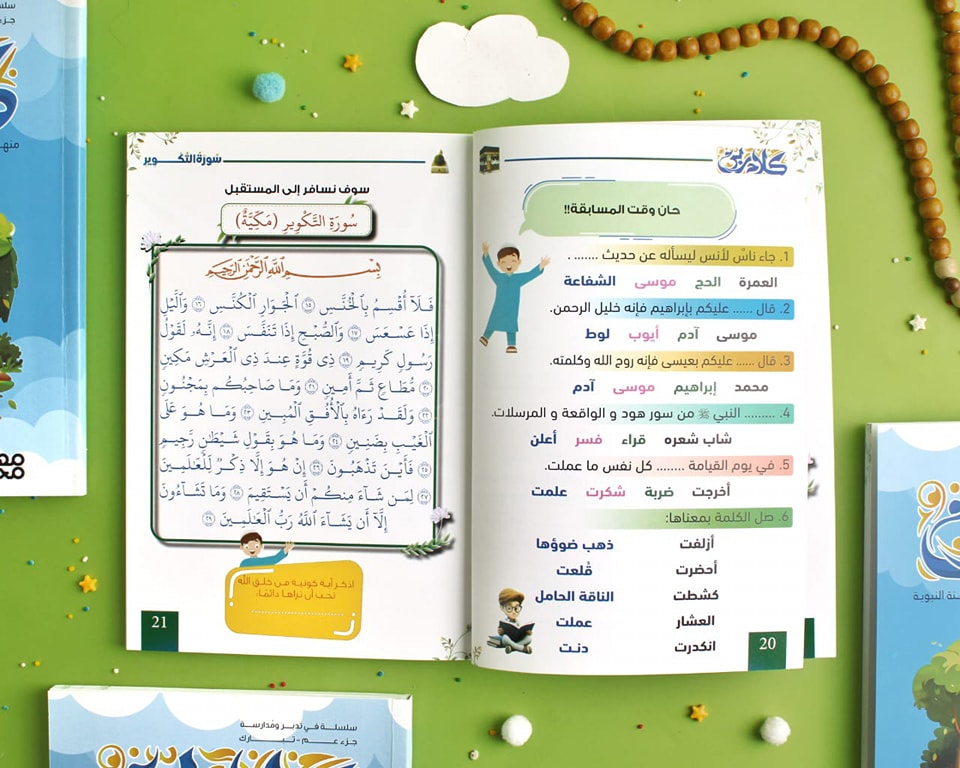 كلام ربي
حان وقت المسابقة!!
1. جاء ناسٌ لأنس ليسأله عن حديث ....... .
العمرة الحج موسى الشفاعة
2. قال ...... عليكم بإبراهيم فإنه خليل الرحمن.
موسى آدم أيوب لوط
3. قال ...... عليكم بعيسى فإنه روح الله وكلمته.
محمد إبراهيم موسى آدم
4. ......... النبي ﷺ من سور هود و الواقعة و المرسلات.
شاب شعره قراء فسر أعلن
5. في يوم القيامة ........ كل نفس ما عملت.
أخرجت ضربة شكرت علمت
6. صل الكلمة بمعناها:
أزلفت ذهب ضوؤها
أحضرت قُلعت
كشطت الناقة الحامل
العشار عملت
انكدرت دنت
20
سُورَةُ التَّكْوير
سوف نسافر إلى المستقبل
سُورَةِ التَّكْوِيرِ (مَكِّيَّةٌ)
بِسْمِ اللَّهِ الرَّحْمَٰنِ الرَّحِيمِ
فَلَآ أُقْسِمُ بِالْخُنَّسِ ١٥ الْجَوَارِ الْكُنَّسِ ١٦ وَالَّيْلِ
إِذَا عَسْعَسَ ١٧ وَالصُّبْحِ إِذَا تَنَفَّسَ ١٨ إِنَّهُۥ لَقَوْلُ
رَسُولٍ كَرِيمٍ ١٩ ذِى قُوَّةٍ عِندَ ذِى الْعَرْشِ مَكِينٍ
٢٠ مُّطَاعٍ ثَمَّ أَمِينٍ ٢١ وَمَا صَاحِبُكُم بِمَجْنُونٍ
٢٢ وَلَقَدْ رَءَاهُ بِالْأُفُقِ الْمُبِينِ ٢٣ وَمَا هُوَ عَلَى
الْغَيْبِ بِضَنِينٍ ٢٤ وَمَا هُوَ بِقَوْلِ شَيْطَٰنٍ رَّجِيمٍ
٢٥ فَأَيْنَ تَذْهَبُونَ ٢٦ إِنْ هُوَ إِلَّا ذِكْرٌ لِّلْعَٰلَمِينَ
٢٧ لِمَن شَآءَ مِنكُمْ أَن يَسْتَقِيمَ ٢٨ وَمَا تَشَآءُونَ
إِلَّآ أَن يَشَآءَ اللَّهُ رَبُّ الْعَٰلَمِينَ ٢٩
اذكر آية كونية من خلق الله
تحب أن تراها دائمًا:
21
سلسلة في تدبر ومُدارسة
جزء عم - تبارك